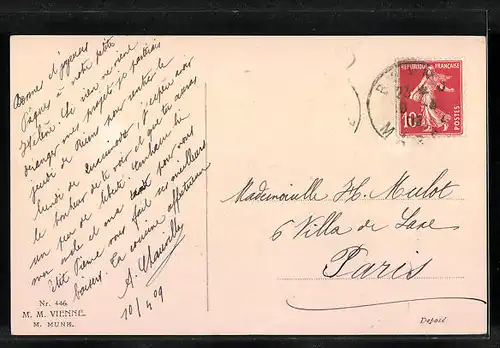 Bonnes et joyeuses
Pâques à notre petite
Hélène. Si rien ne vient
déranger mes projets je partirais
jeudi de pour rentrer le
lundi de j'espère avoir
le bonheur de te voir et que tu auras
un peu de liberté. Embrasse bien
mon oncle et ma tante pour vous
Pierre vous fait ses meilleurs
baisers. Ta cousine affectueuse
10/4 09
Nr. 446.
M. M. VIENNE.
M. MUNK.
REPUBLIQUE FRANÇAISE
10c
POSTES
Mademoiselle H. Mulot
6 Villa de Saxe
Paris
Deposé